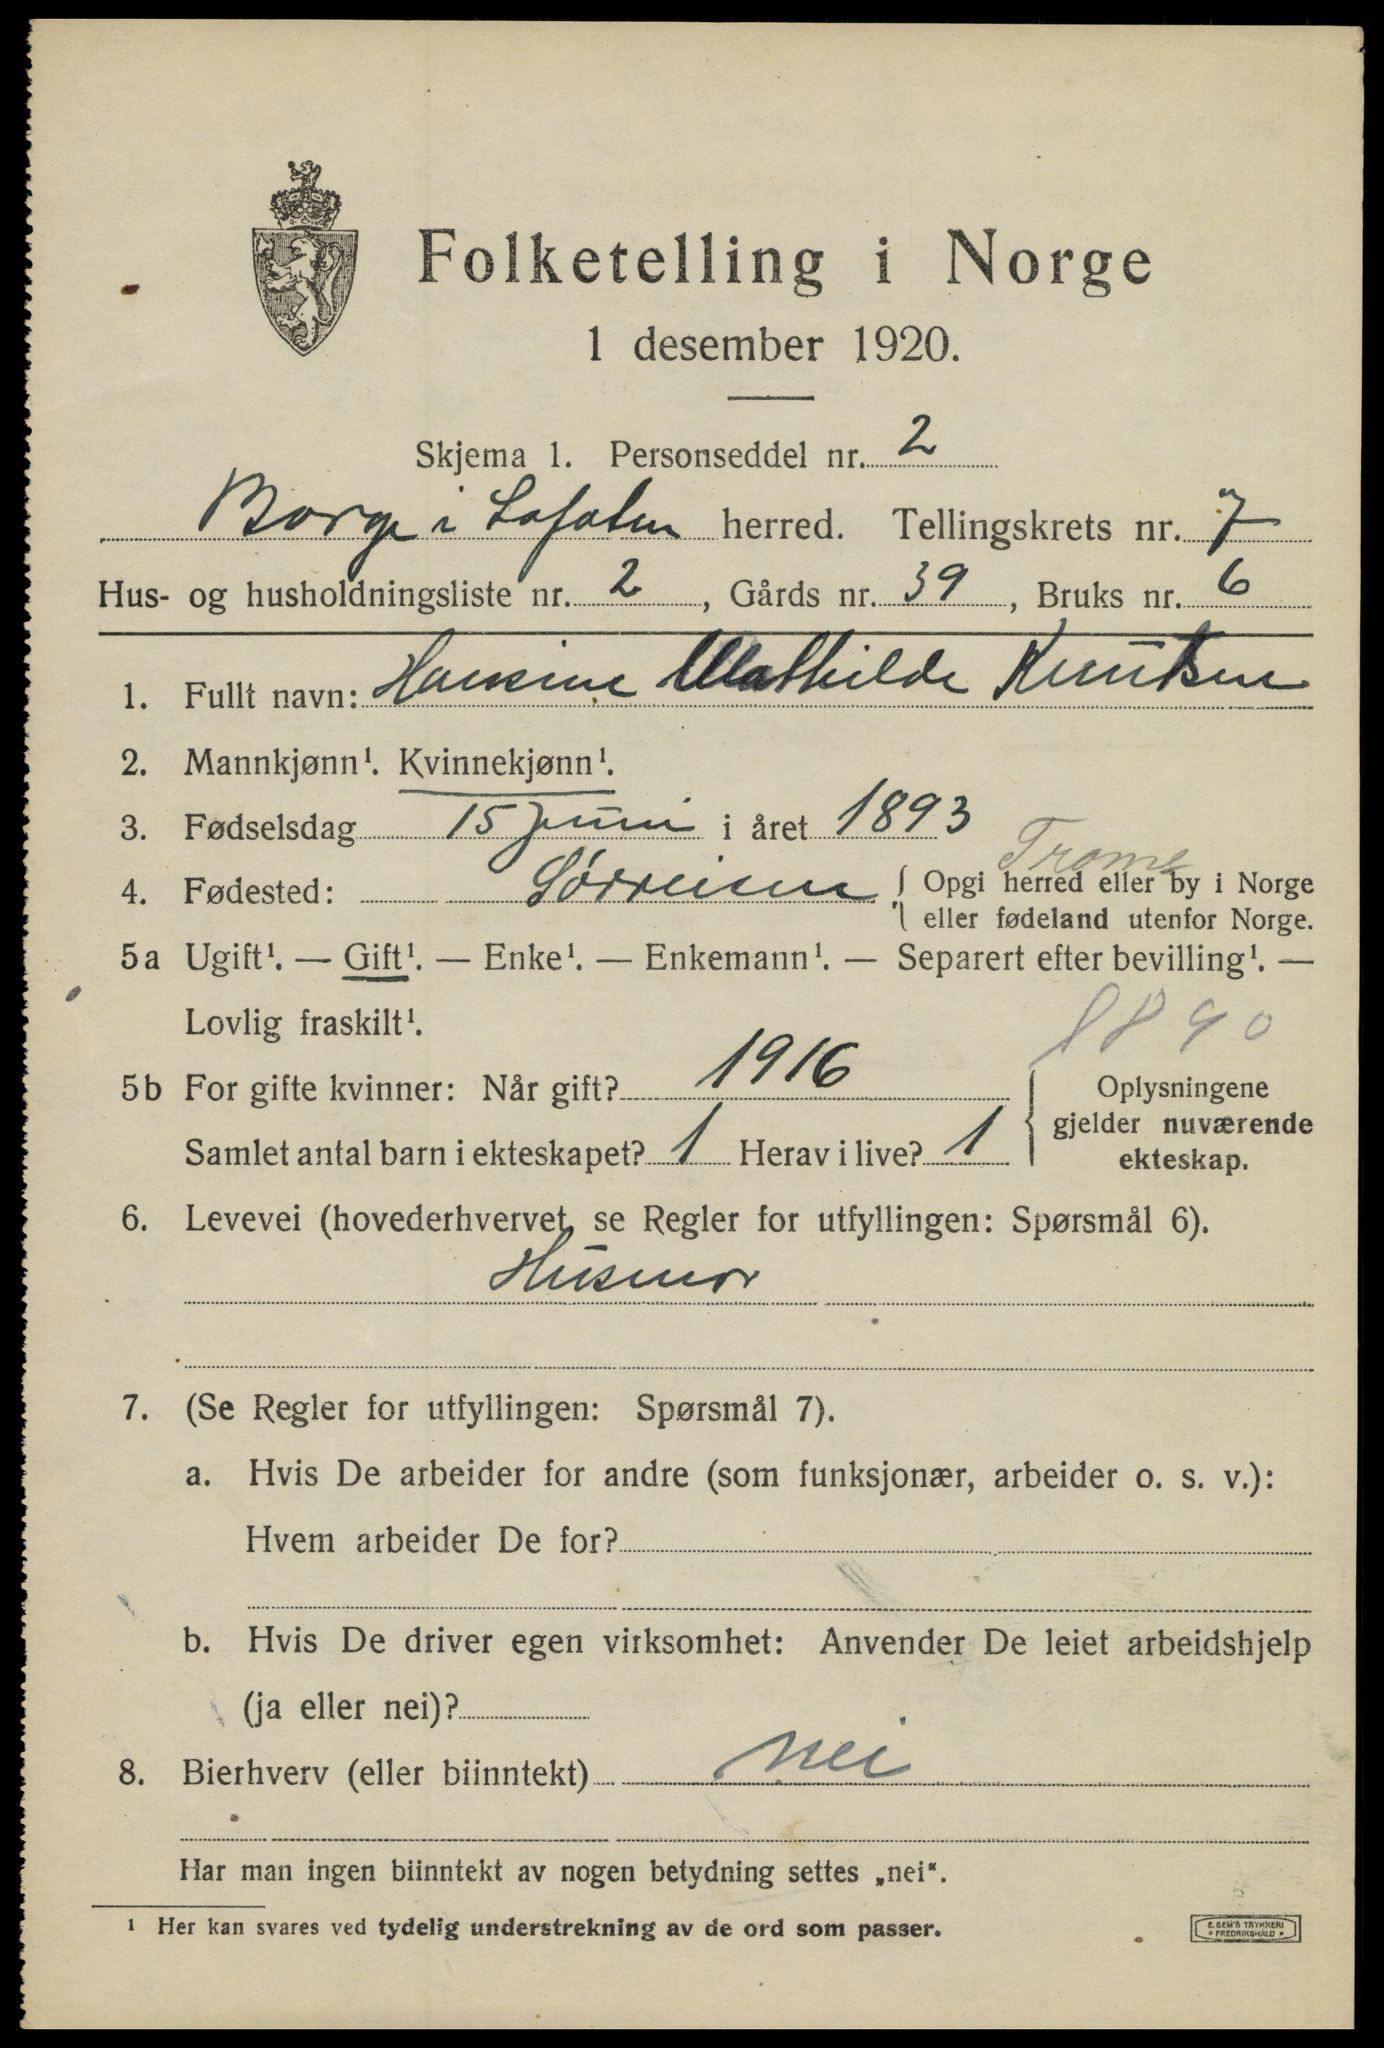 Folketelling i Norge
1 desember 1920.
Skjema 1. Personseddel nr. 2
Borge i Lofoten herred. Tellingskrets nr. 7
Hus- og husholdningsliste nr. 2, Gårds nr. 39, Bruks nr. 6
1. Fullt navn: Hansine Mathilde Knutsen
2. Mannkjønn¹. Kvinnekjønn¹.
3. Fødselsdag 15 juni i året 1893
Troms
4. Fødested: Sørreisen { Opgi herred eller by i Norge
eller fødeland utenfor Norge.
5a Ugift¹. — Gift¹. — Enke¹. — Enkemann¹. — Separert efter bevilling¹. —
Lovlig fraskilt¹.
5b For gifte kvinner: Når gift? 1916
Samlet antal barn i ekteskapet? 1 Herav i live? 1
{ Oplysningene
gjelder nuværende
ekteskap.
6. Levevei (hovederhvervet, se Regler for utfyllingen: Spørsmål 6).
Husmor
7. (Se Regler for utfyllingen: Spørsmål 7).
a. Hvis De arbeider for andre (som funksjonær, arbeider o. s. v.):
Hvem arbeider De for?
b. Hvis De driver egen virksomhet: Anvender De leiet arbeidshjelp
(ja eller nei)?
8. Bierhverv (eller biinntekt) nei
Har man ingen biinntekt av nogen betydning settes „nei“.
¹ Her kan svares ved tydelig understrekning av de ord som passer.
E. SEM'S TRYKKERI
* FREDRIKSHALD *